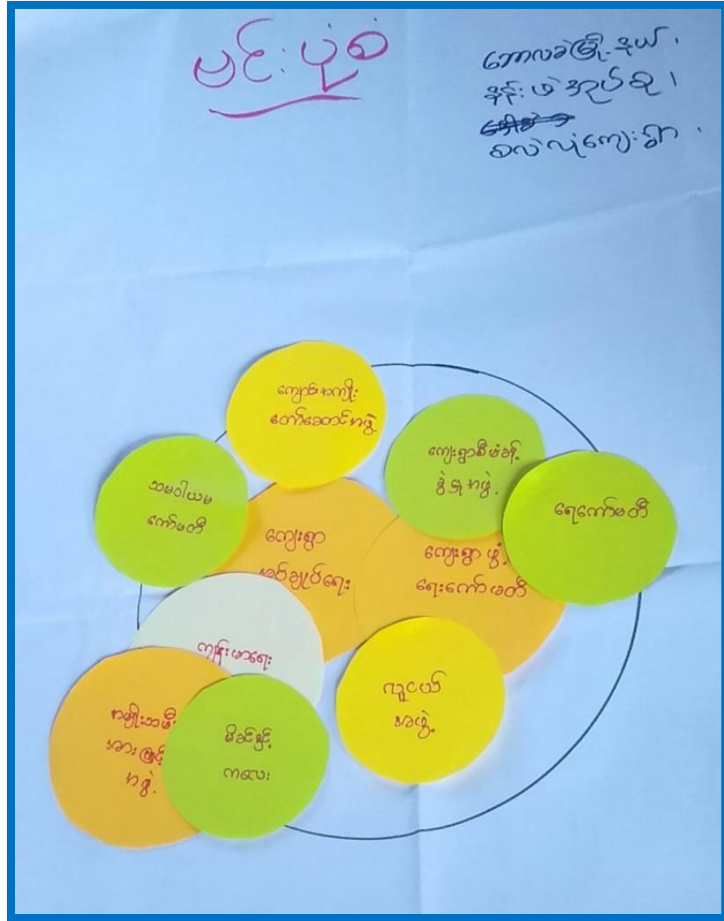 ဗင်းပုံစံ
ဘောလခဲမြို့နယ်၊
နန်းဖဲအုပ်စု၊
စလဲလုံကျေးရွာ၊
ကျောင်းအကျိုး
တော်ဆောင်အဖွဲ့
ကျေးရွာစီမံခန့်
ခွဲမှုအဖွဲ့
ရေကော်မတီ
သမဝါယမ
ကော်မတီ
ကျေးရွာ
အုပ်ချုပ်ရေး
ကျေးရွာ ဖွံ့
ရေးကော်မတီ
ကျန်းမာရေး
လူငယ်
အဖွဲ့
အမျိုးသမီး
အားဖြင့်
အဖွဲ့
မိခင်နှင့်
ကလေး